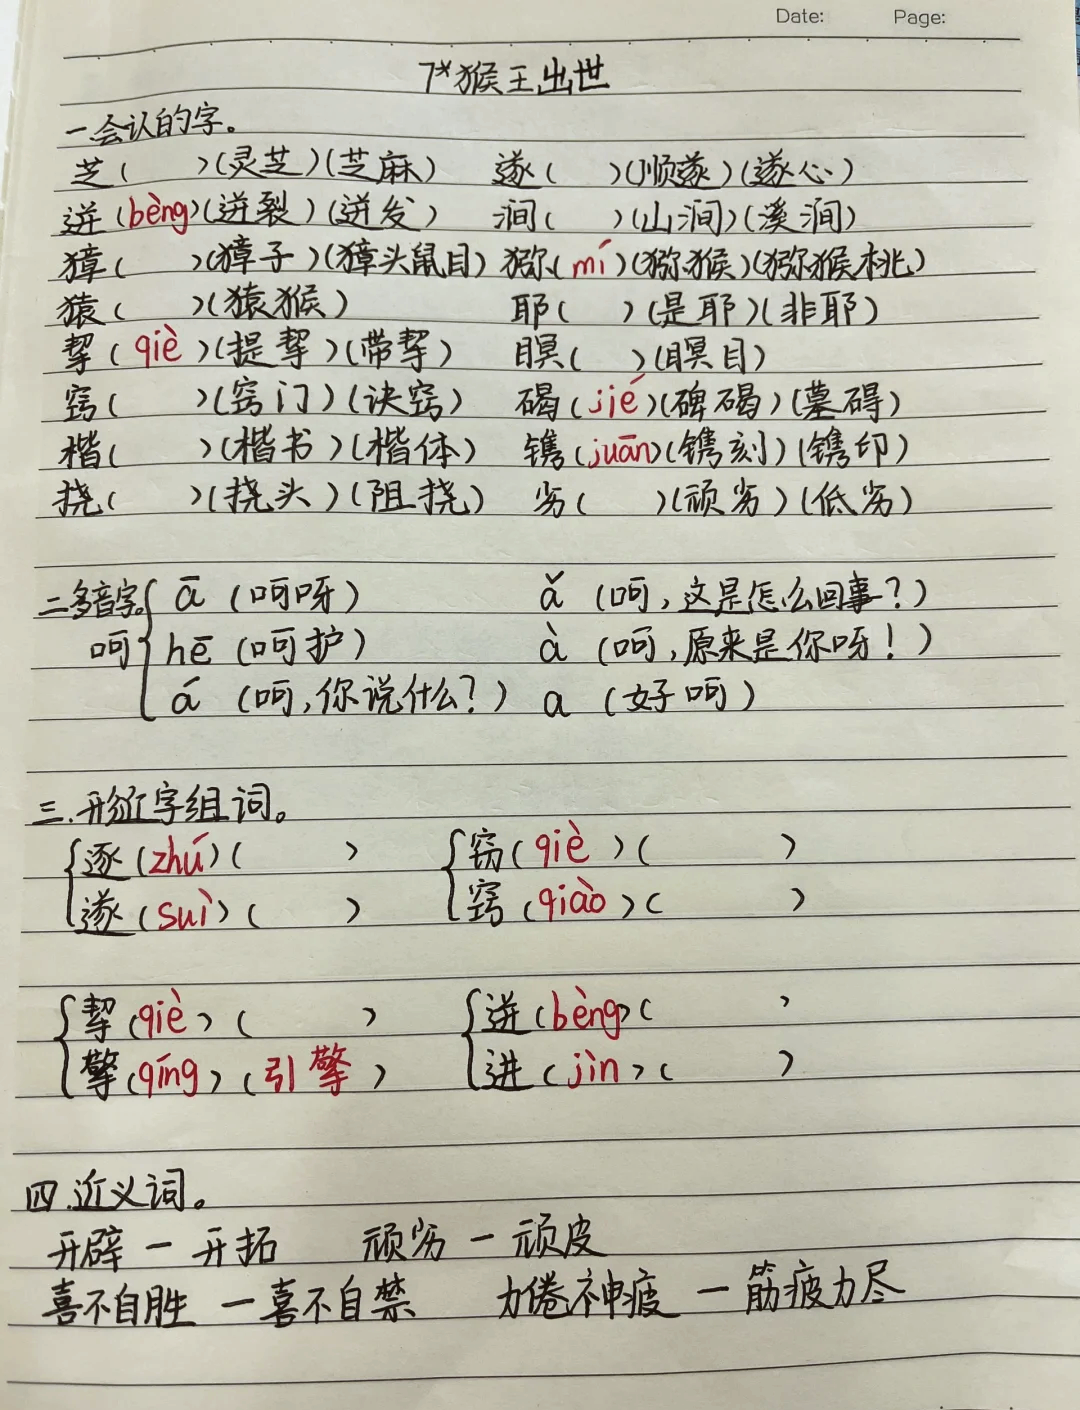 Date: Page:
7*猴王出世
一.会认的字。
芝( )(灵芝)(芝麻) 遂( )(顺遂)(遂心)
迸(bèng)(迸裂)(迸发) 涧( )(山涧)(溪涧)
獐( )(獐子)(獐头鼠目) 猕(mí)(猕猴)(猕猴桃)
猿( )(猿猴) 耶( )(是耶)(非耶)
挈(qiè)(提挈)(带挈) 瞑( )(瞑目)
窍( )(窍门)(诀窍) 碣(jié)(碑碣)(墓碍)
楷( )(楷书)(楷体) 镌(juān)(镌刻)(镌印)
挠( )(挠头)(阻挠) 劣( )(顽劣)(低劣)
二.多音字。 ā (呵呀) ǎ (呵,这是怎么回事?)
呵 hē (呵护) à (呵,原来是你呀!)
á (呵,你说什么?) a (好呵)
三.形近字组词。
逐(zhú)( ) 窃(qiè)( )
遂(suì)( ) 窍(qiào)( )
挈(qiè)( ) 迸(bèng)( )
擎(qíng)(引擎) 进(jìn)( )
四.近义词。
开辟一开拓 顽劣一顽皮
喜不自胜一喜不自禁 力倦神疲一筋疲力尽